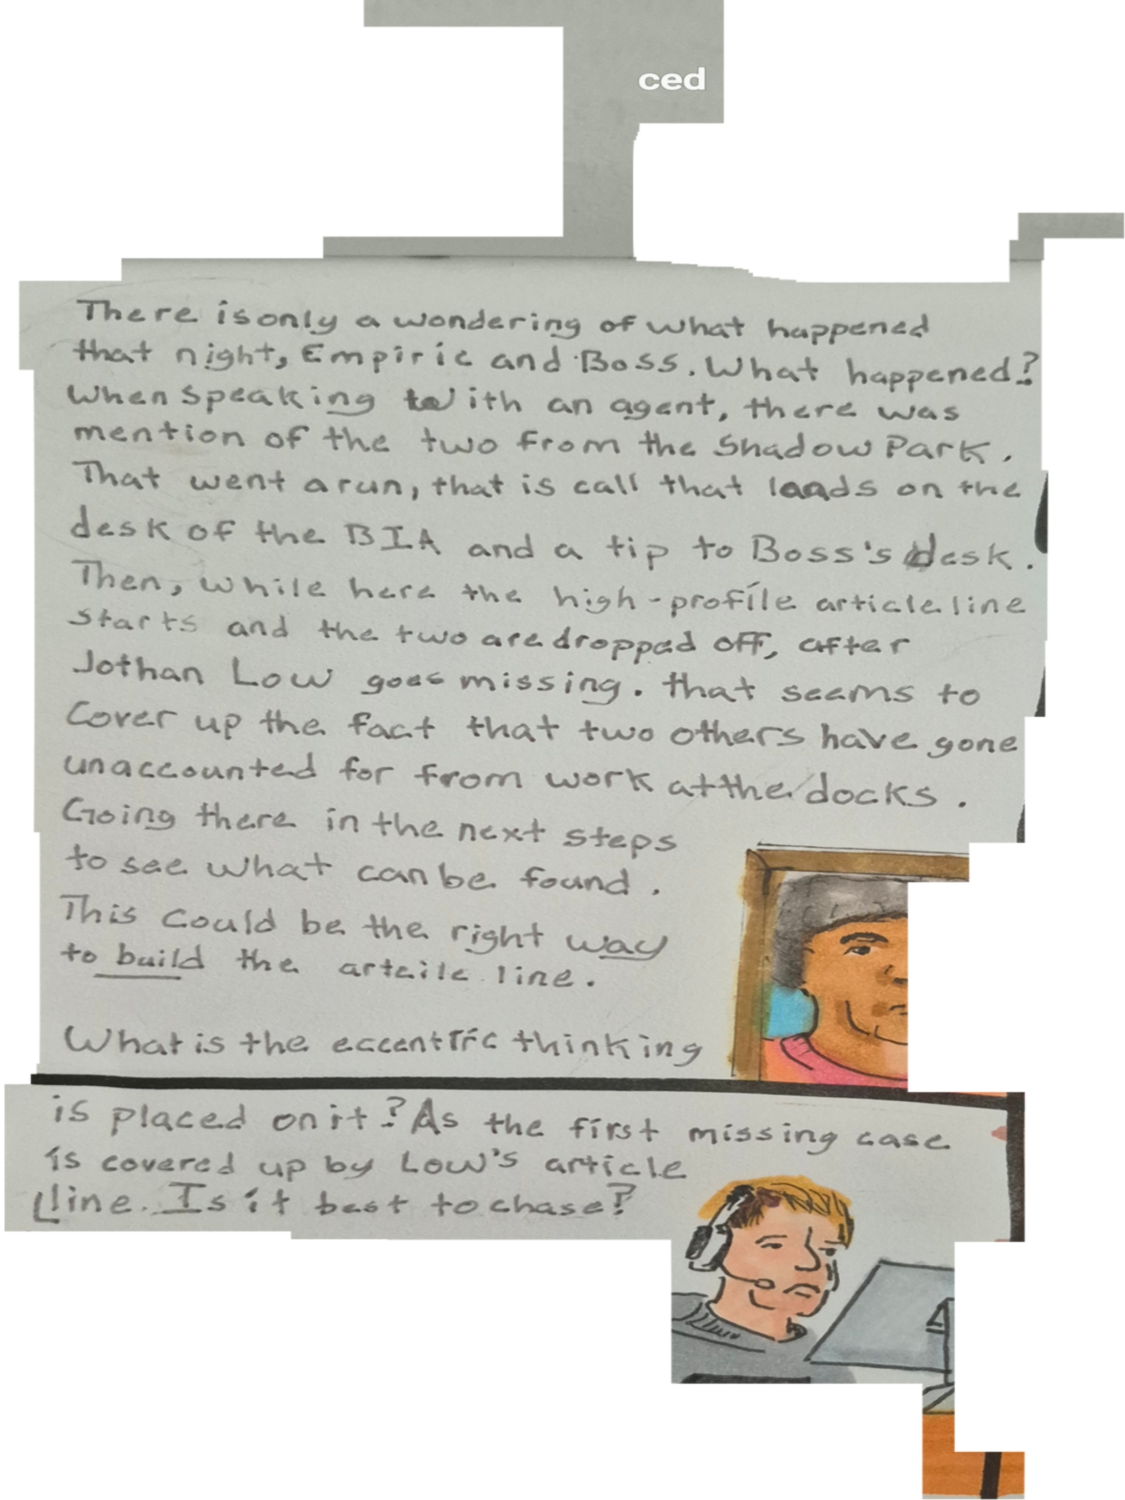 ced
There is only a wondering of what happened
that night, Empiric and Boss. What happened?
When speaking with an agent, there was
mention of the two from the Shadow Park.
That went a run, that is call that lands on the
desk of the BIA and a tip to Boss's desk.
Then, while here the high-profile article line
starts and the two are dropped off, after
Jothan Low goes missing. that seems to
Cover up the fact that two others have gone
unaccounted for from work at the docks.
Going there in the next steps
to see what can be found.
This could be the right way
to build the arteile line.
What is the eccentric thinking
is placed on it? As the first missing case
is covered up by Low's article
line. Is it best to chase?